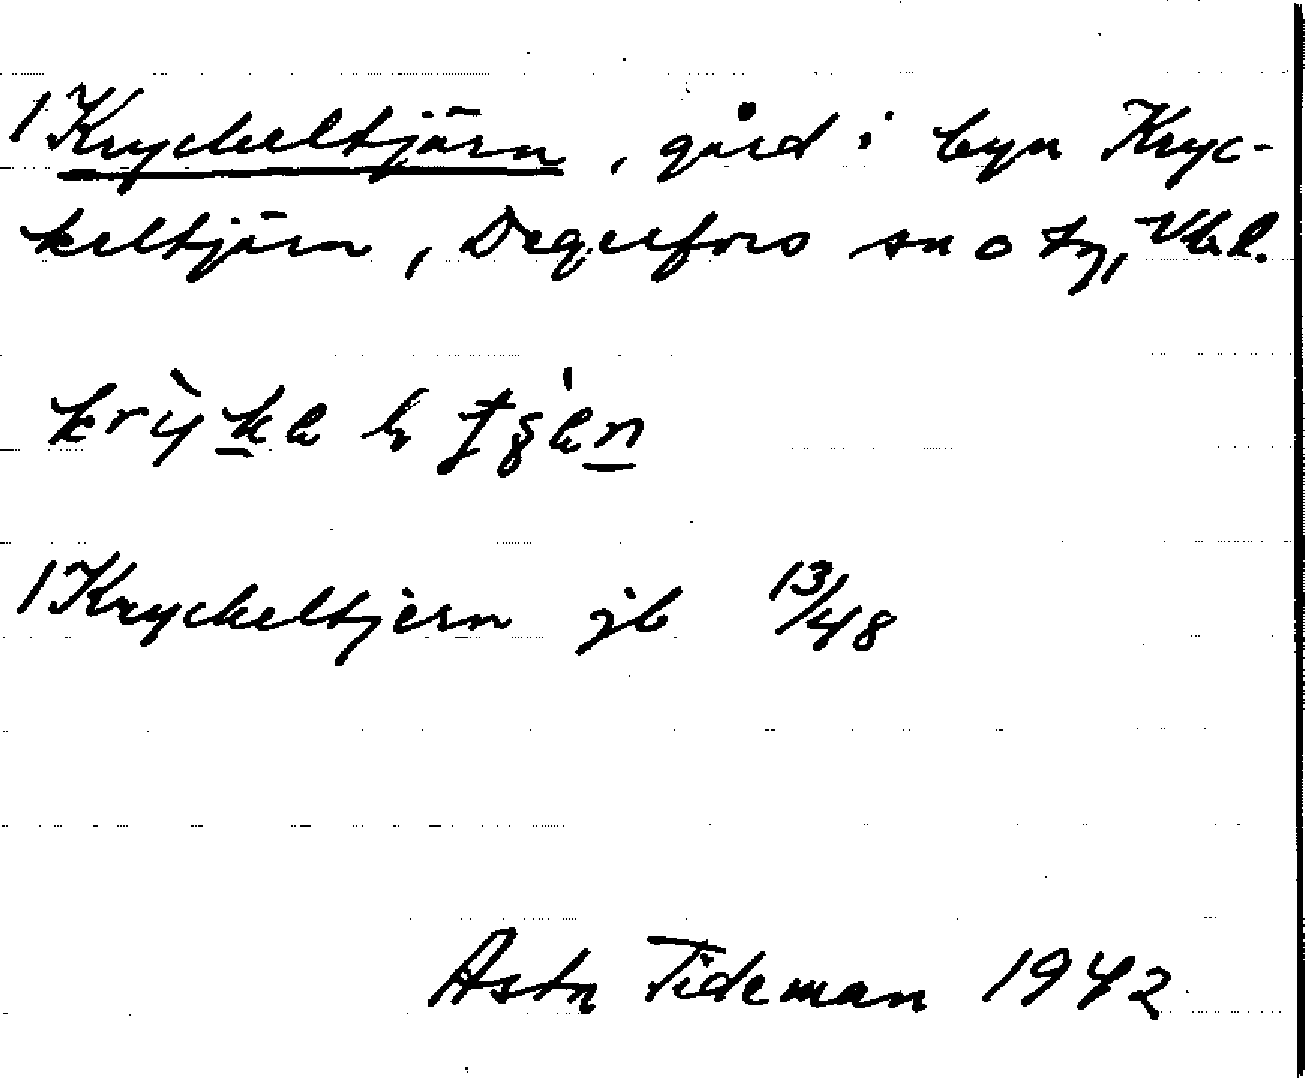 /Kryckeltjärn, gård i byn Kryc-
keltjärn, Degerfors sn o tg, Vbl.
/Kryckeltjern jb 13/48
Asta Tideman 1942